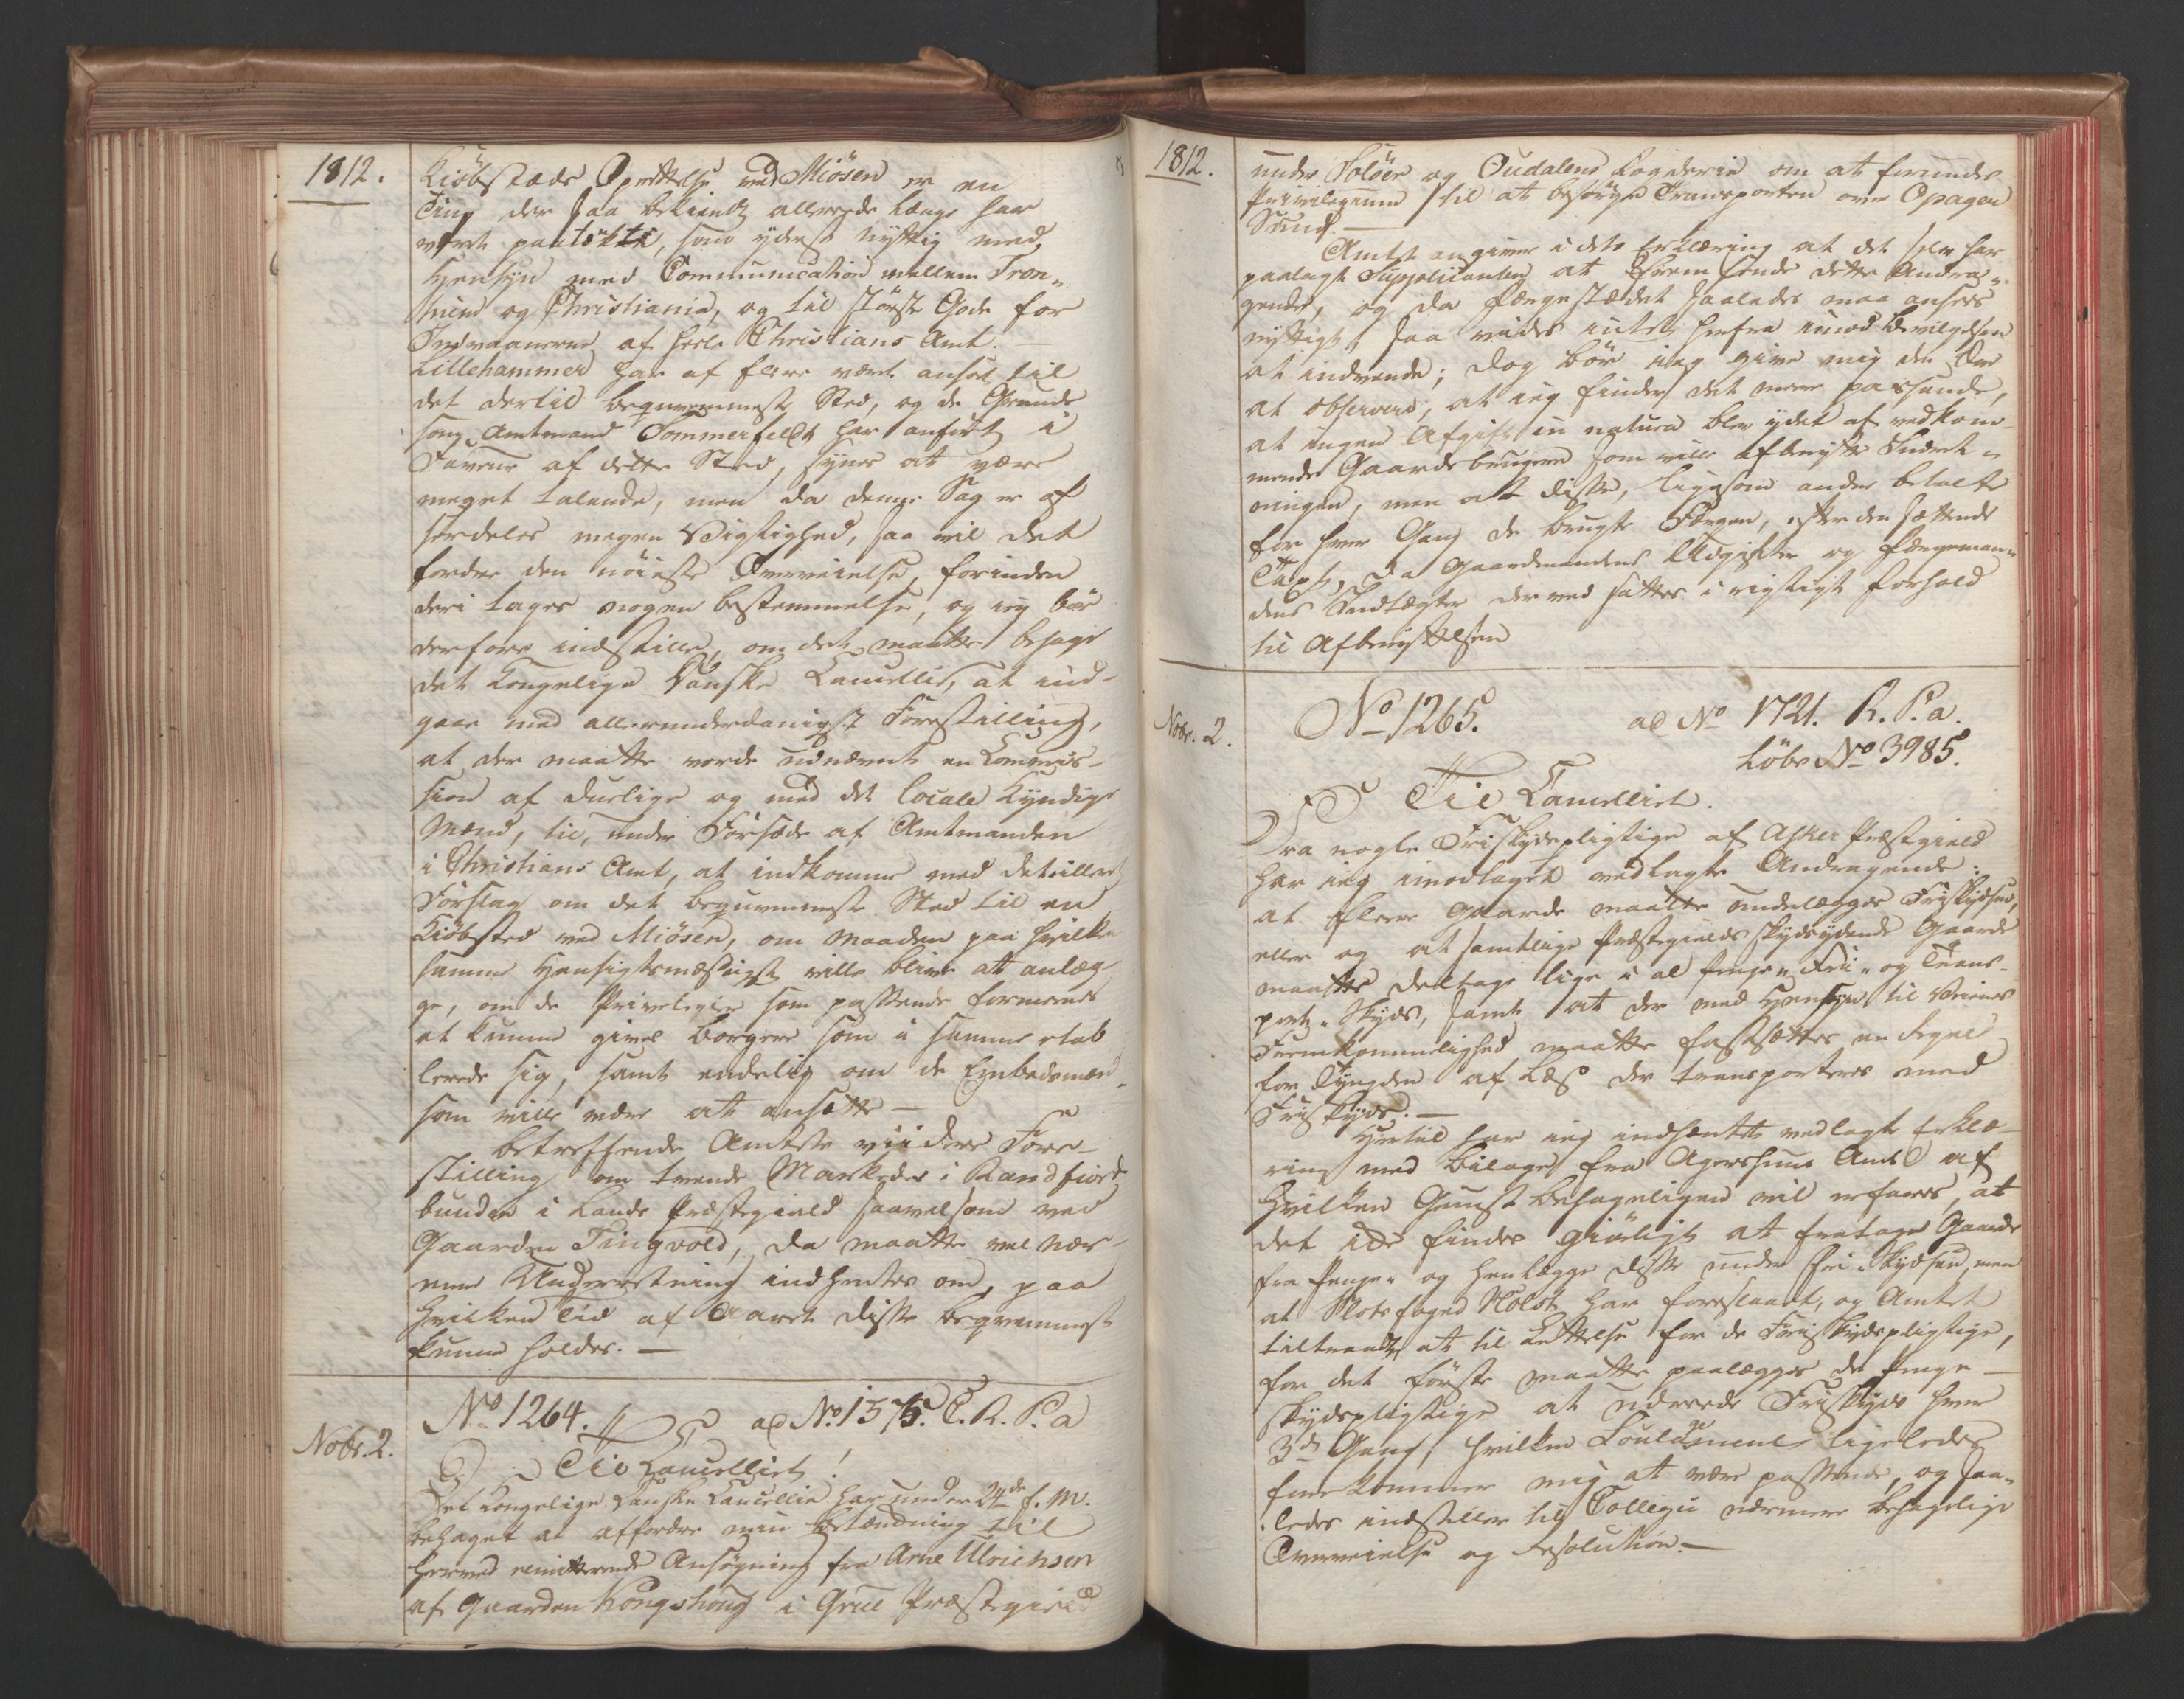 1812.
Kiöbstæds Oprettelse ved Miösen er en
Ting der saa bekiendt allerede længe har
vært paatænkt, som yderst nyttig med
Hensyn med Communication mellem Tron-
hiem og Christiania, og til störste Gode for
Indvaanerne af heele Christians Amt. —
Lillehammer har af flere vært anset til
det dertil beqvemmeste Sted, og de Grunde
som Amtmand Sommerfeldt har anfört i
Faveur af dette Sted, synes at være
meget talende, men da denne Sag er af
særdeles megen Vigtighed, saa vil det
fordre den nöieste Overveielse, forinden
deri tages nogen bestemmelse, og ieg bör
derfore indstille, om det maatte behage
det Kongelige Danske Cancellie, at ind-
gaae med allerunderdanigst Forestilling,
at der maatte vorde udnævnt en Commis-
sion af duelige og med det locale Kyndige
Mænd, til, under Forsæde af Amtmanden
i Christians Amt, at indkomme med detailleret
Forslag om det beqvemmeste Sted til en
Kiöbsted ved Miösen, om Maaden paa hvilken
samme Hensigtsmæssigst ville blive at anlæg-
ge, om de Privelegier som passende formenes
at kunne gives Borgere som i samme etab
lerede sig, samt endelig om de Embedsmænd
som ville være at ansætte —
Betreffende Amtets viidere Fore-
stilling om tvende Markeder i Randsfiord
bunden i Lands Præstegield saavelsom ved
Gaarden Tingvold, da maatte vel nær-
mere Underretning indhentes om, paa
hvilken Tid af Aaret disse beqvemmest
kunne holdes. —
Nobr. 2.
No 1264. ad No 1575. C. R. P. a
Til Cancelliet!
Det Kongelige Danske Cancellie har under 24de f. M.
behaget at affordre min Betænkning til
herved remitterende Ansögning fra Arne Ulrichsen
af Gaarden Kongshoug i Grue Præstegield
1812.
under Solöer og Oudalens Fogderie om at forundes
Privilegium til at besörge Transporten over Opagen
Sund. —
Amtet angiver i dets Erklæring at det selv har
paalagt Supplicanten at fremsende dette Andra-
gende, og da Færgestædet saaledes maa ansees
nyttigt, saa vides intet herfra imod Bevilgelsen
at indvende; dog bör ieg give mig den Ære
at observere, at ieg finder det mere passende,
at ingen Afgift in natura blev ydet af vedkom-
mende Gaardebrugere som ville afbenytte Indret-
ningen, men at disse, ligesom andre betalte
for hver Gang de brugte Færgen, efter den sættende
Taxt, da Gaardmandens Udgifter og Færgeman-
dens Indtægter derved sættes i rigtigt forhold
til Afbenyttelsen
Nobr. 2.
No 1265. ad No 1721. R. P. a.
Löbe No 3985.
Til Cancelliet.
Fra nogle Friskydspligtige af Asker Præstegield
har ieg imodtaget vedlagte Andragende:
at flere Gaarde maatte underlægges Friskydsen,
eller og at samtlige Præstegields skydsydende Gaarde
maatte deltage lige i al Penge- Frie- og Trans-
port- Skyds, samt at der med Hensyn til Veienes
Fremkommelighed maatte fastsættes en Regel
for Tyngden af Læs der transporteres med
Friskyds. —
Hertil har ieg indhentet vedlagte Erklæ-
ring med Bilage fra Agershuus Amt af
hvilken Gunst behageligen vil erfares, at
det ikke findes giörligt at fratage Gaarde
fra Penge- og henlægge disse under Fri-Skydsen, men
at Slotsfoged Holst har foreslaaet, og Amtet
tiltraadt at til Lettelse for de Friskydspligtige,
for det förste maatte paalægges de Penge-
skydspligtige at udreede Friskyds hver
3de Gang, hvilken Foulagement ligeledes
forekommer mig at være passende, og saa-
ledes indstiller til Collegii nærmere behagelige
Overveielse og Resolution. —